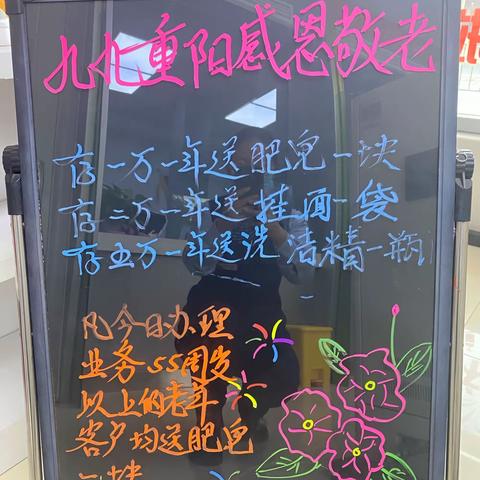 九九重阳感恩敬老
存一万一年送肥皂一块
存二万一年送挂面一袋
存五万一年送洗洁精一瓶
凡今日办理
业务55周岁
以上的老年
客户均送肥皂
一块